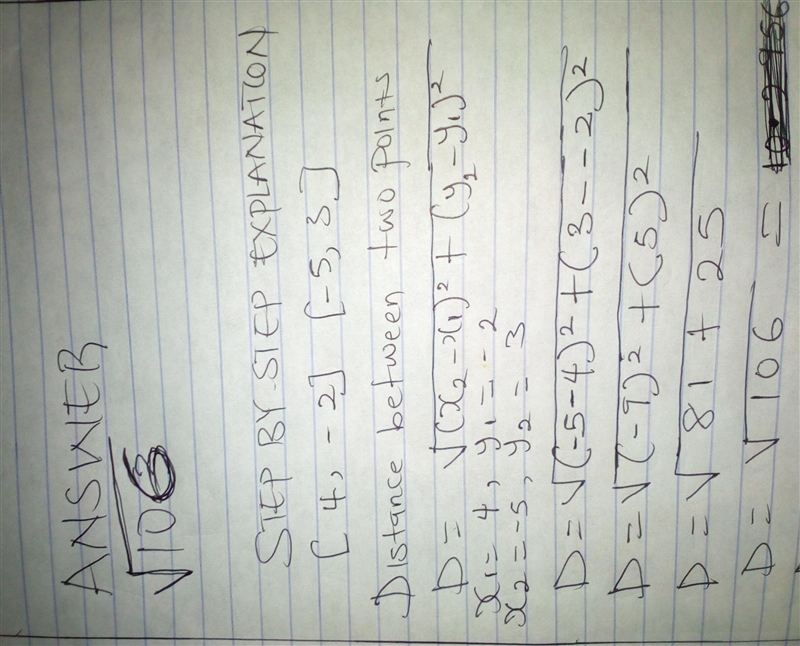 ANSWER
√106
STEP BY STEP EXPLANATION
[4, -2] [-5, 3]
Distance between two points
D = √(x₂-x₁)² + (y₂-y₁)²
x₁= 4, y₁ = -2
x₂ = -5, y₂ = 3
D=√(-5-4)²+(3--2)²
D=√(-9)²+(5)²
D=√81 + 25
D= √106 =